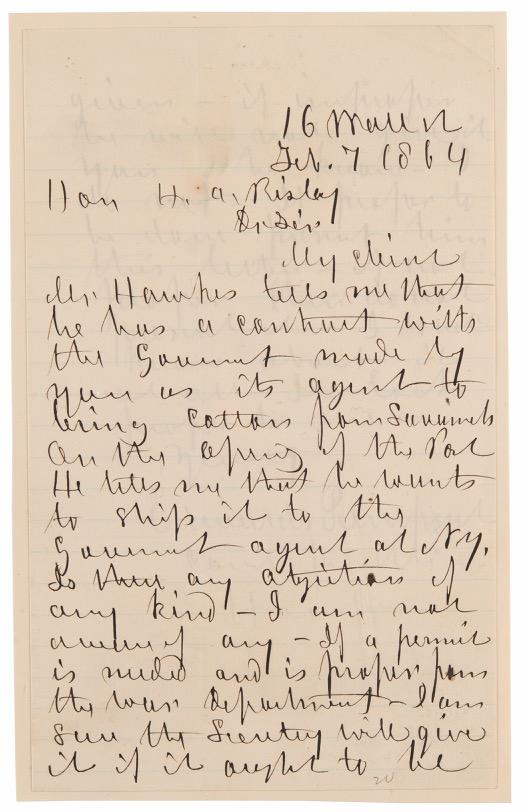 16 Wall st
Feb. 7 1864
Hon H. A. Risley
Dr Sir
My client
Mr. Hawkes tells me that
he has a contract with
the Governmt made by
you as its agent to
bring cotton from Savannah
On the opening of the Port
He tells me that he wants
to ship it to the
Governmt agent at N.Y.
Is there any objection of
any kind – I am not
aware of any – If a permit
is needed and is proper from
the war department – I am
sure the Secretary will give
it if it ought to be